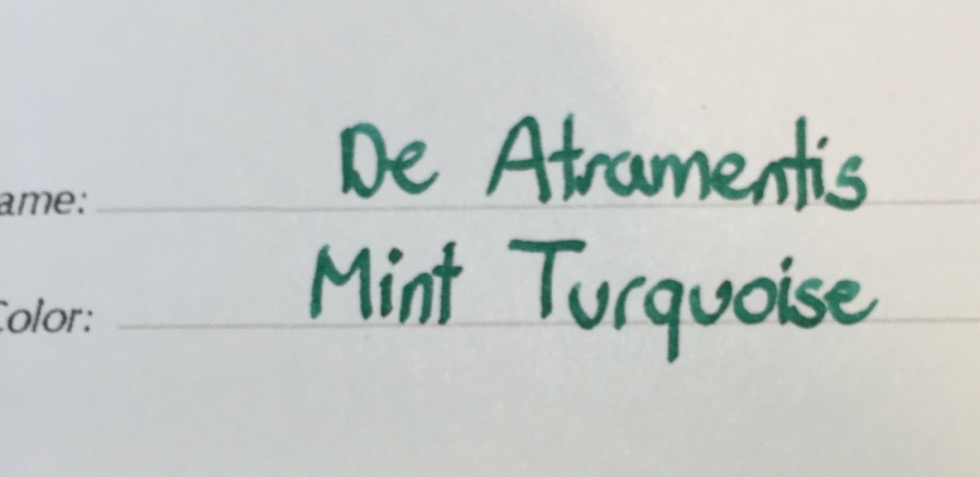 ame: De Atramentis
Color: Mint Turquoise